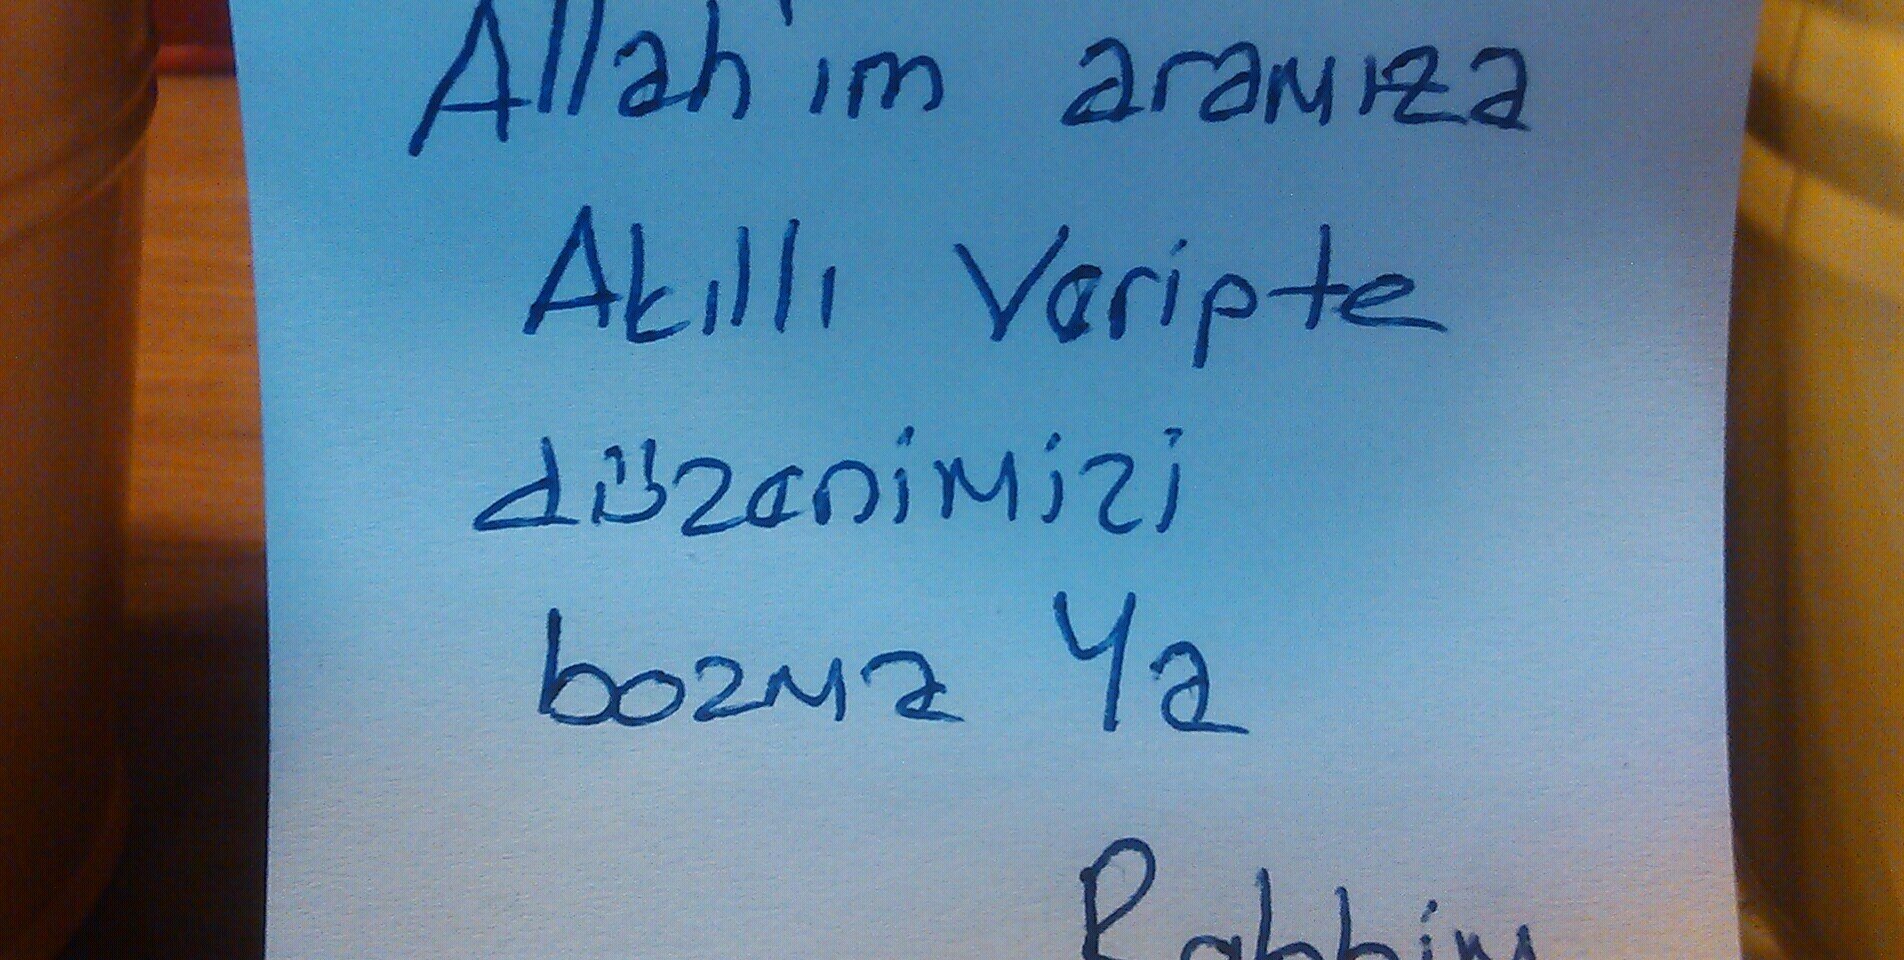 Allah'ım aramıza
Akıllı Veripte
düzenimizi
bozma Ya
Rabbim